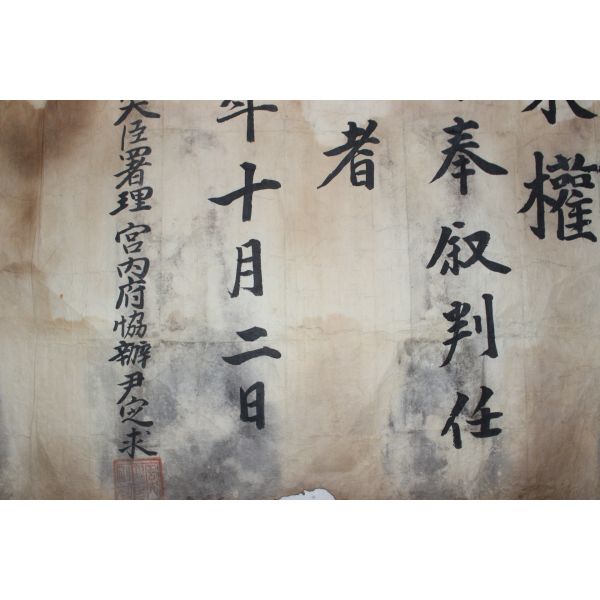 權
奉叙判任
者
年十月二日
大臣署理宮內府協辦尹定求